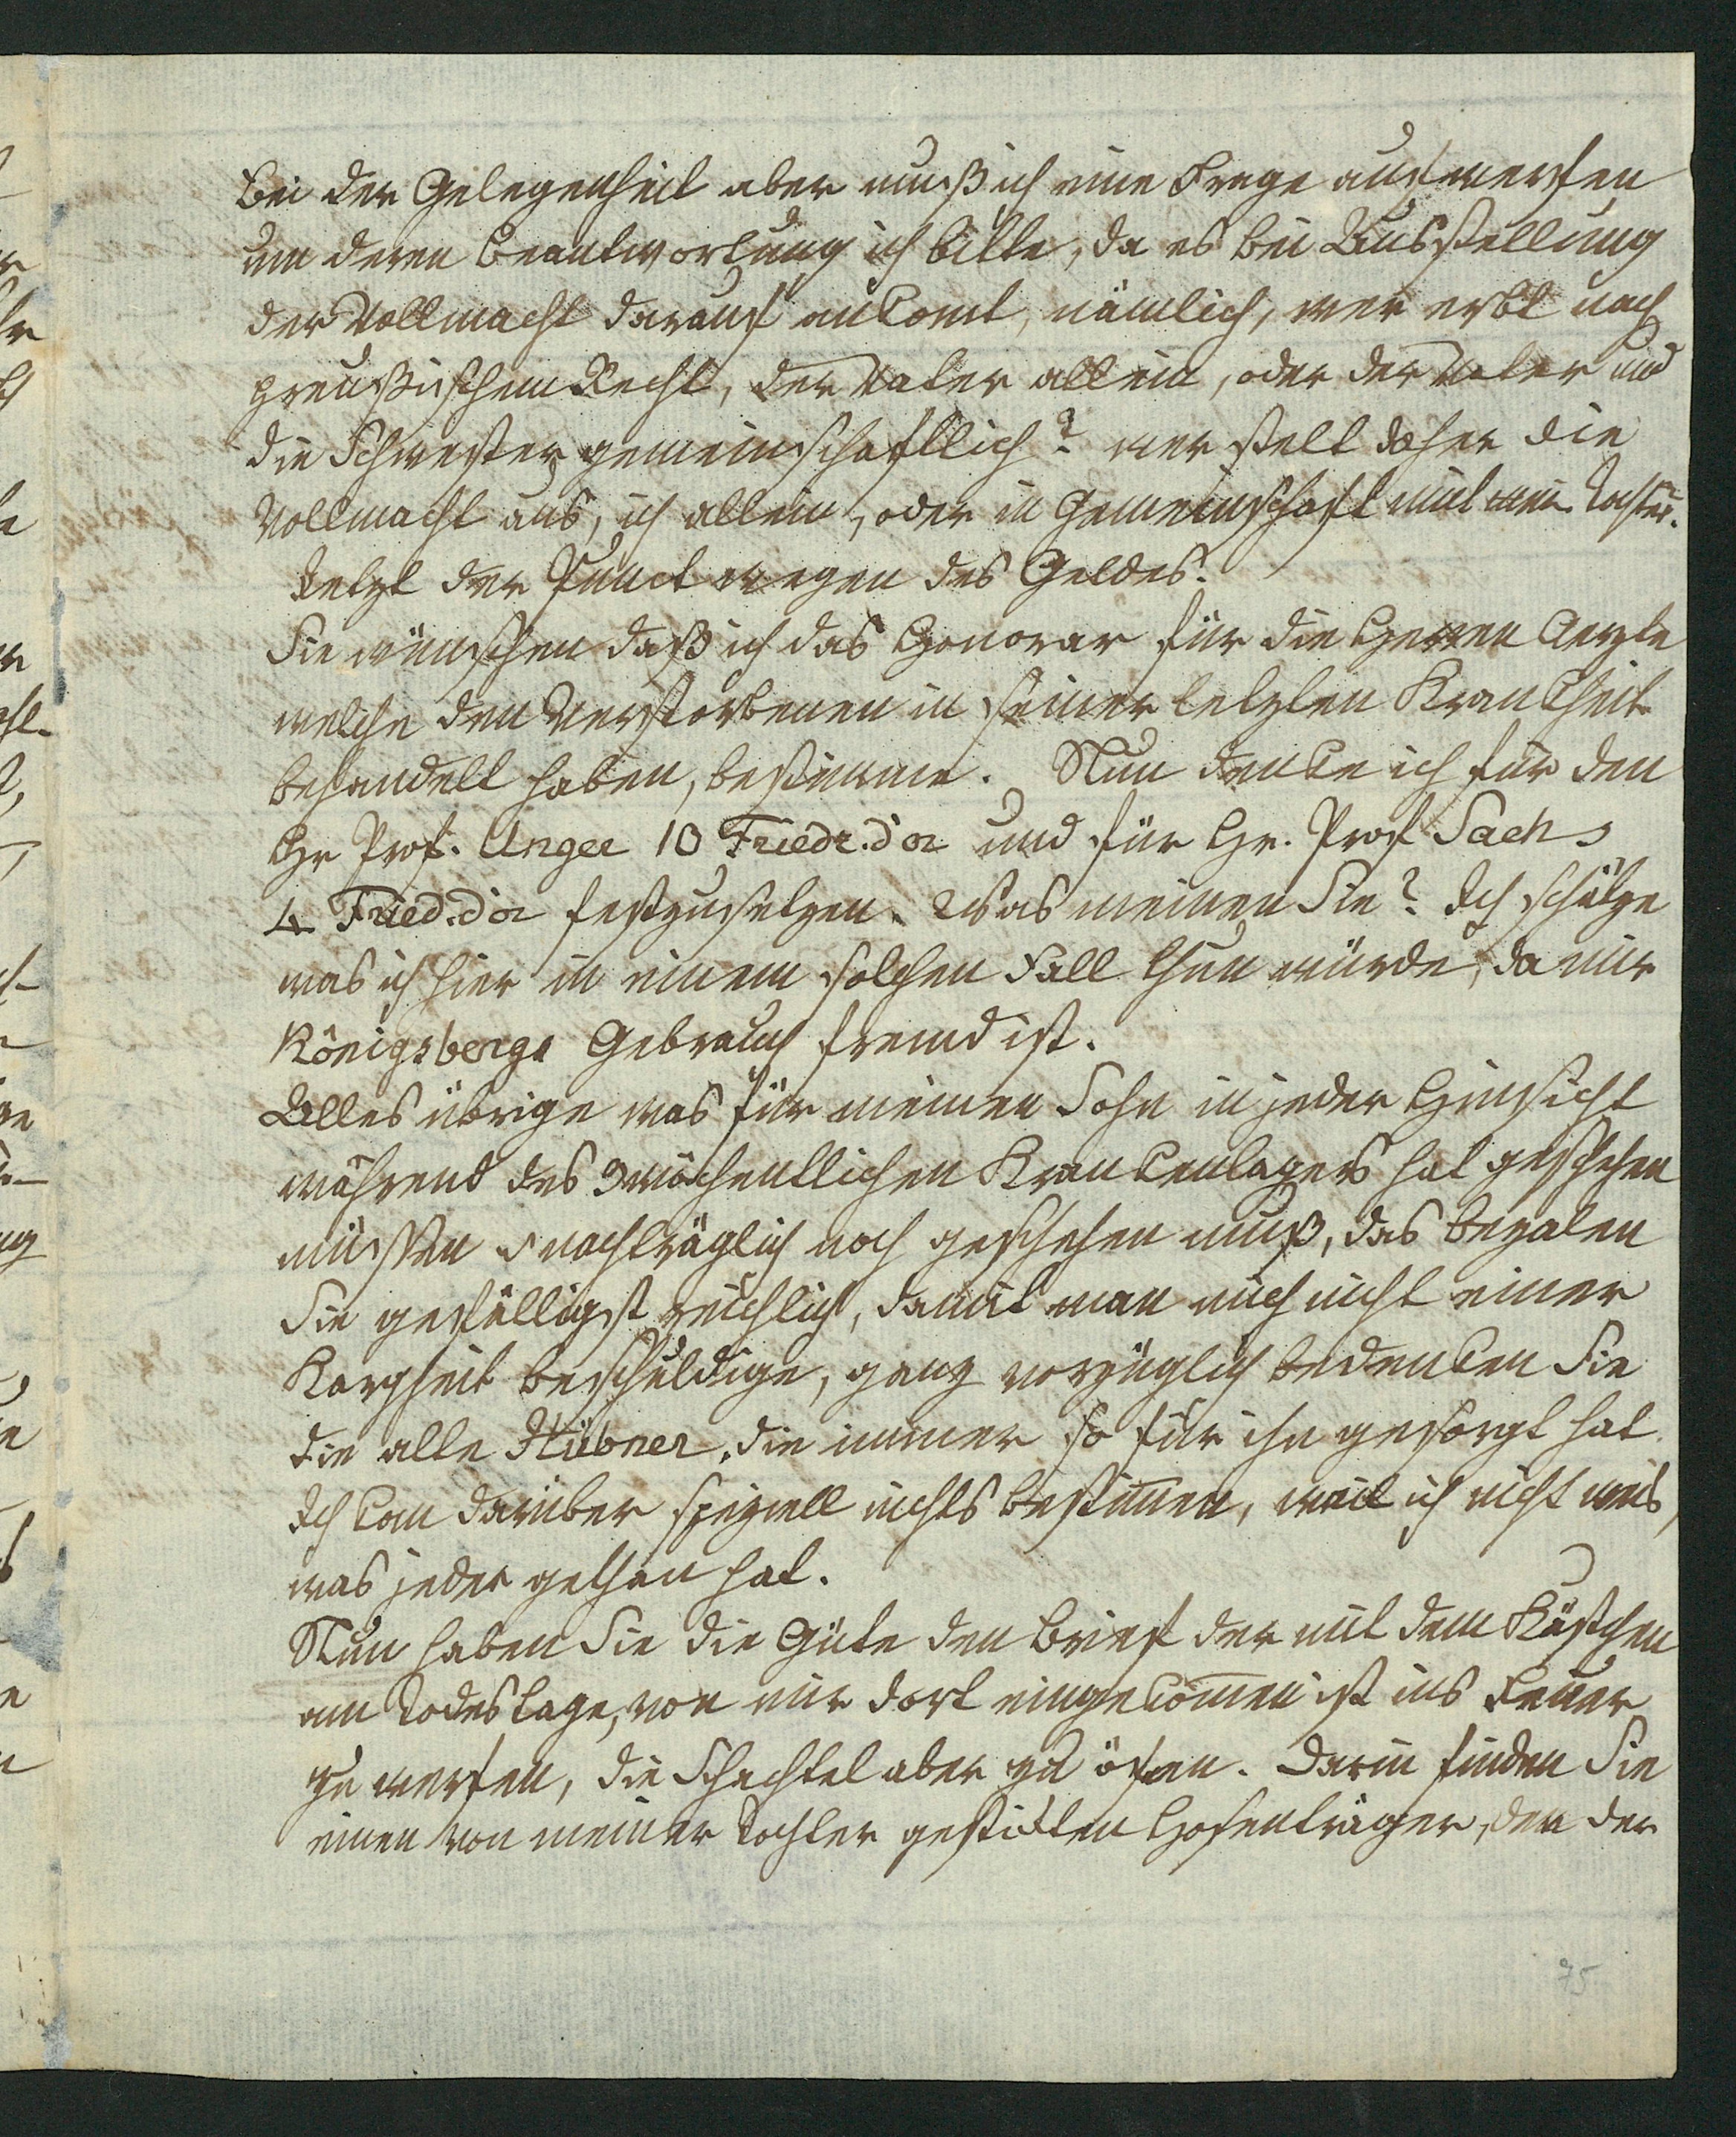 Bei der Gelegenheit aber muß ich eine Frage aufwerfen
um deren Beantwortung ich bitte, da es bei Ausstellung
der Vollmacht darauf ankomt, nämlich, wer erbt nach
preußischem Recht, der Vater allein, oder der Vater und
die Schwester gemeinschaftlich? wer stelt daher die
Vollmacht aus, ich allein, oder in Gemeinschaft mit mein. Tochter.
Jetzt der Punct wegen des Geldes.
Sie wünschen daß ich das Honorar für die Herren Aerzte
welche den Verstorbenen in seiner letzten Krankheit
behandelt haben, bestimme. Nun denke ich für den
Hr Prof. Unger 10 Friedr.d'or und für Hr. Prof Sachs
4 Fried.d'or festzusetzen. Was meinen Sie? Ich schätze
was ich hier in einem solchen Fall thun würde, da mir
Königsbergs Gebrauch fremd ist.
Alles übrige was für meinen Sohn in jeder Hinsicht
während des 9wöchentlichen Krankenlagers hat geschehen
müssen u nachträglich noch geschehen muß, das bezalen
Sie gefälligst reichlich, damit man mich nicht einer
Kargheit beschuldige, ganz vorzüglich bedenken Sie
die alte Hübner, die immer so für ihn gesorgt hat.
Ich kan darüber speziell nichts bestimmen, weil ich nicht weis,
was jeder gethan hat.
Nun haben Sie die Güte den Brief der mit dem Kästchen
am Todestage, von mir dort eingekommen ist ins Feuer
zu werfen, die Schachtel aber zu öfnen. Darin finden Sie
einen von meiner Tochter gestickten Hosenträger, den der
75